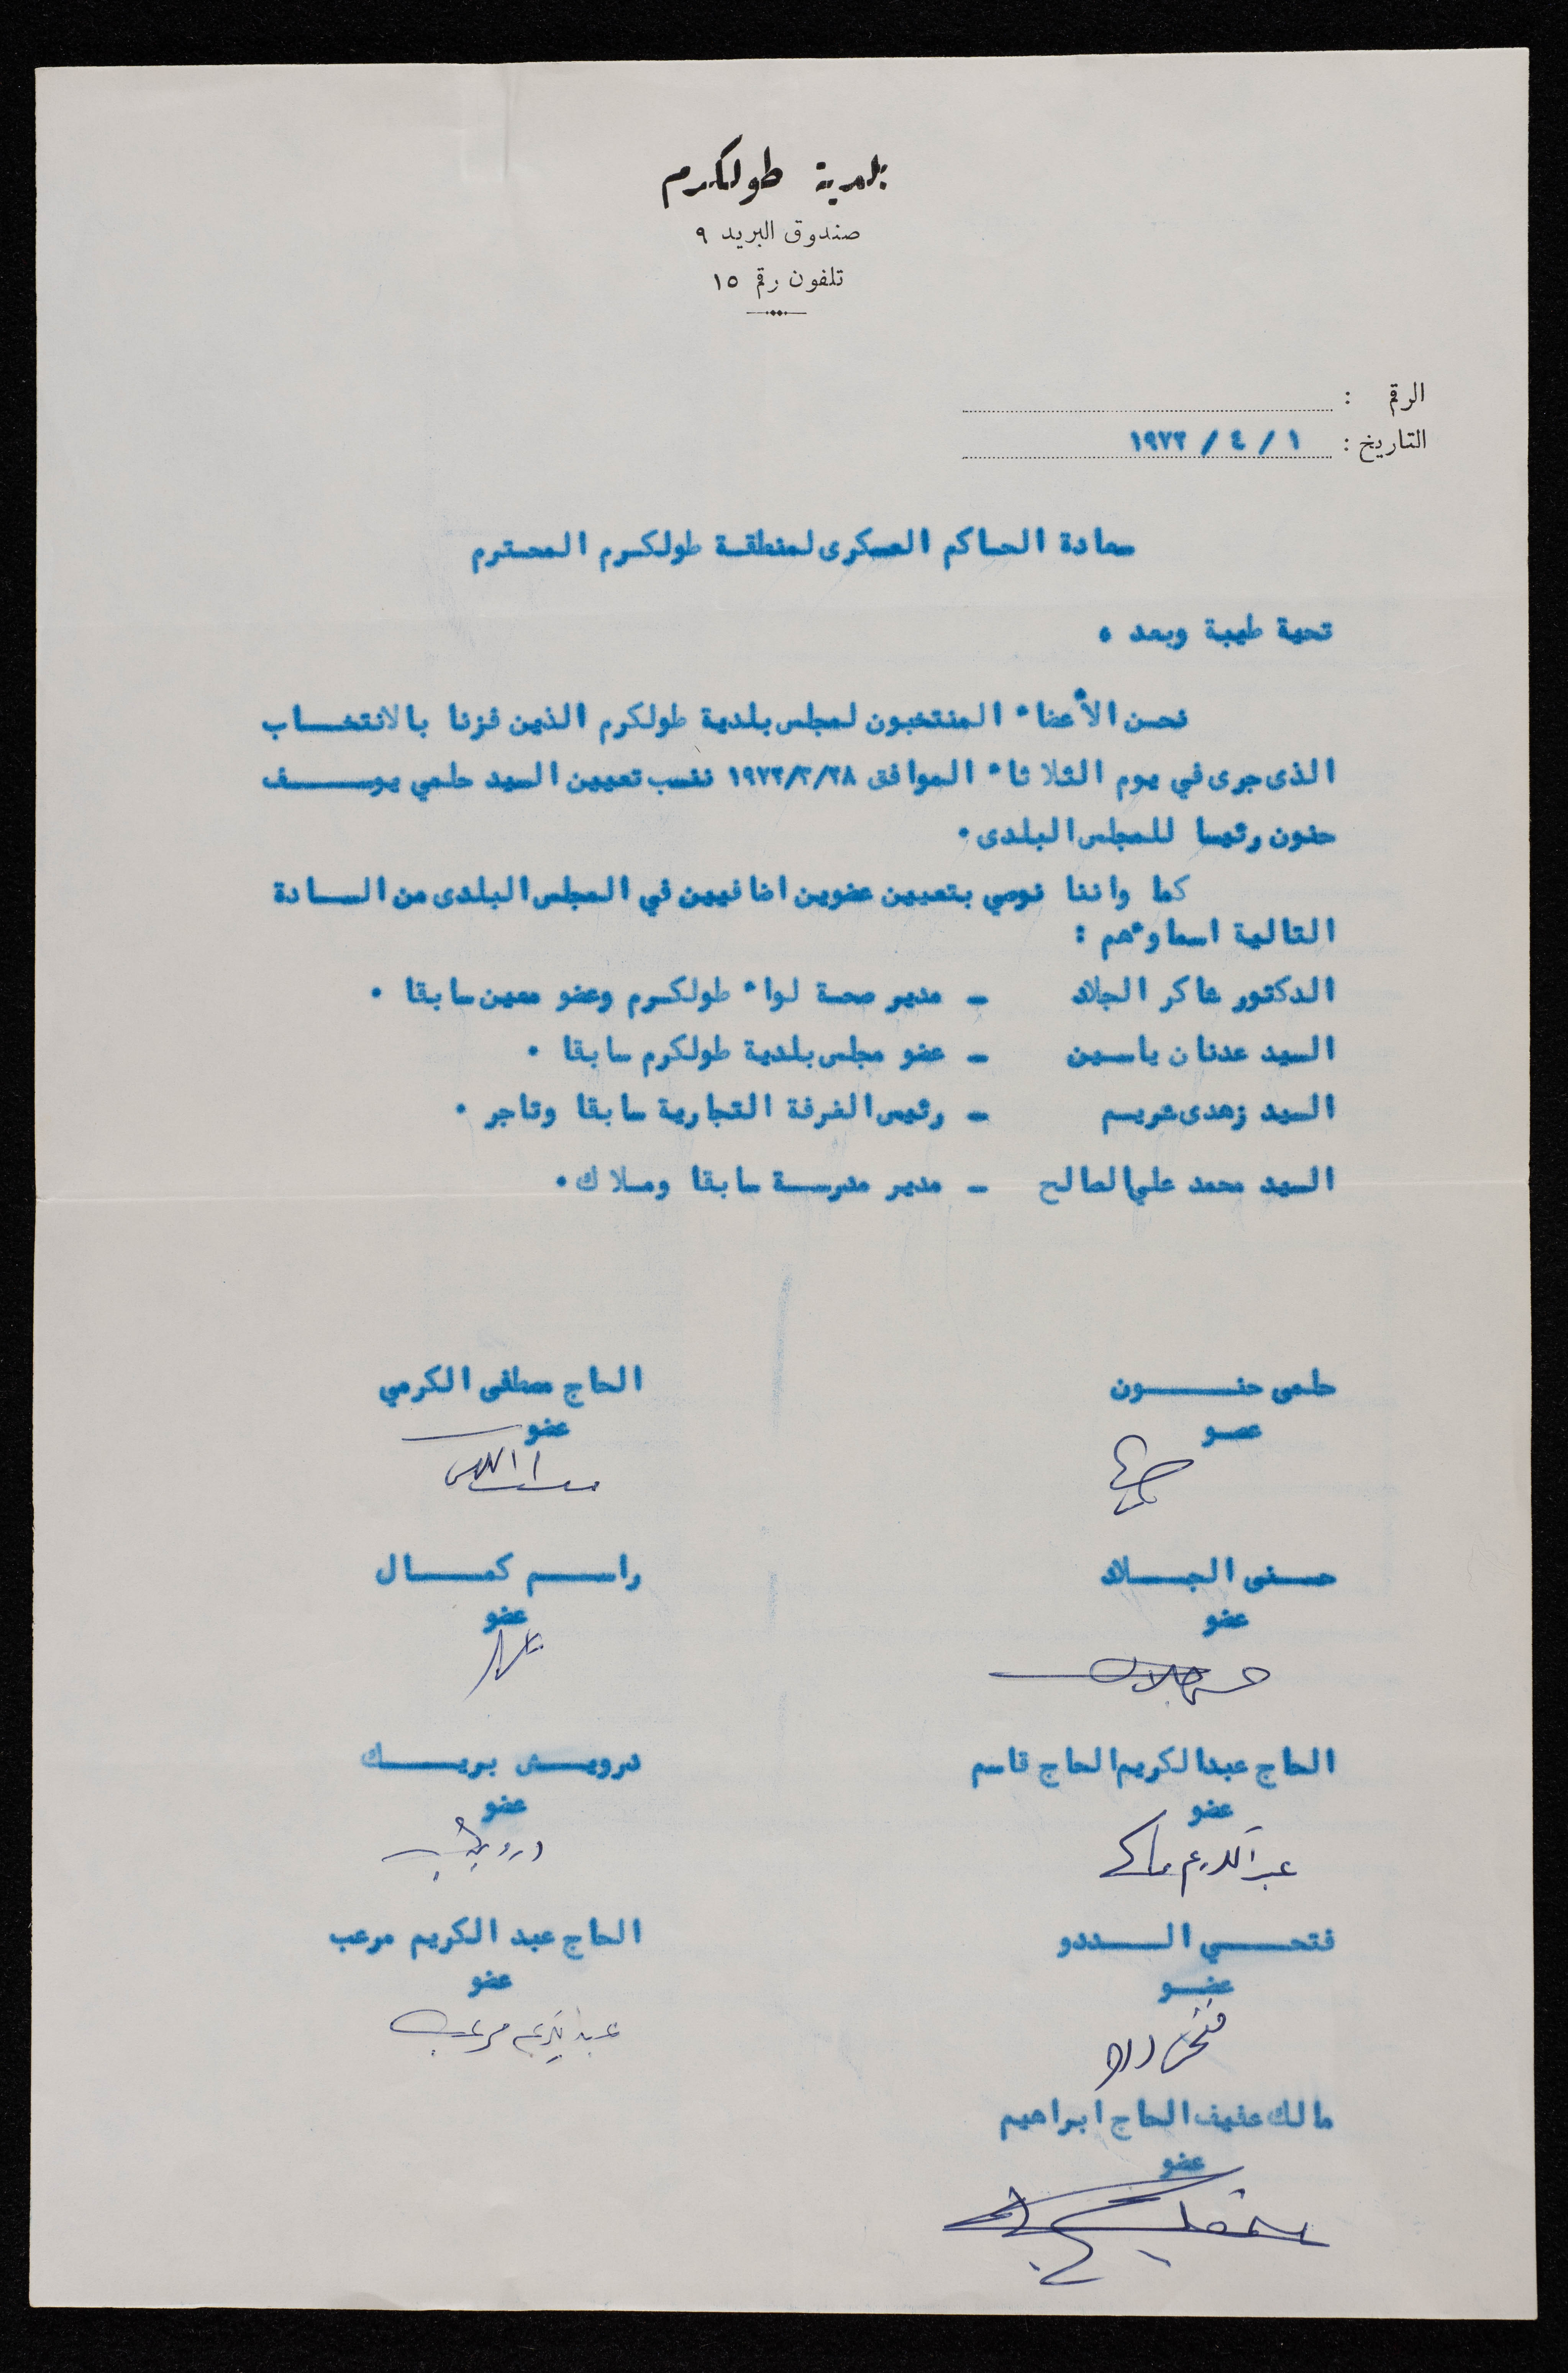 بلدية طولكرم
صندوق البريد ٩
تلفون رقم ١٥
الرقم :
التاريخ : ١ / ٤ / ١٩٧٢
سعادة الحاكم العسكرى لمنطقة طولكرم المحترم
تحية طيبة وبعد ،
نحن الأعضاء المنتخبون لمجلس بلدية طولكرم الذين فزنا بالانتخاب
الذى جرى في يوم الثلاثاء الموافق ١٩٧٢/٣/٢٨ ننسب تعيين السيد حلمي يوسف
حنون رئيسا للمجلس البلدى .
كما واننا نوصي بتعيين عضوين اضافيين في المجلس البلدى من السادة
التالية اسماوءهم :
الدكتور شاكر الجلاد - مدير صحة لواء طولكرم وعضو معين سابقا .
السيد عدنان ياسين - عضو مجلس بلدية طولكرم سابقا .
السيد زهدى شريم - رئيس الغرفة التجارية سابقا وتاجر .
السيد محمد علي الصالح - مدير مدرسة سابقا وملاك .
حلمى حنون الحاج مصطفى الكرمي
عضو عضو
حسنى الجلاد راسم كمال
عضو عضو
الحاج عبدالكريم الحاج قاسم درويش بريك
عضو عضو
فتحي الددو الحاج عبد الكريم مرعب
عضو عضو
عبد الكريم مرعب
مالك عفيف الحاج ابراهيم
عضو